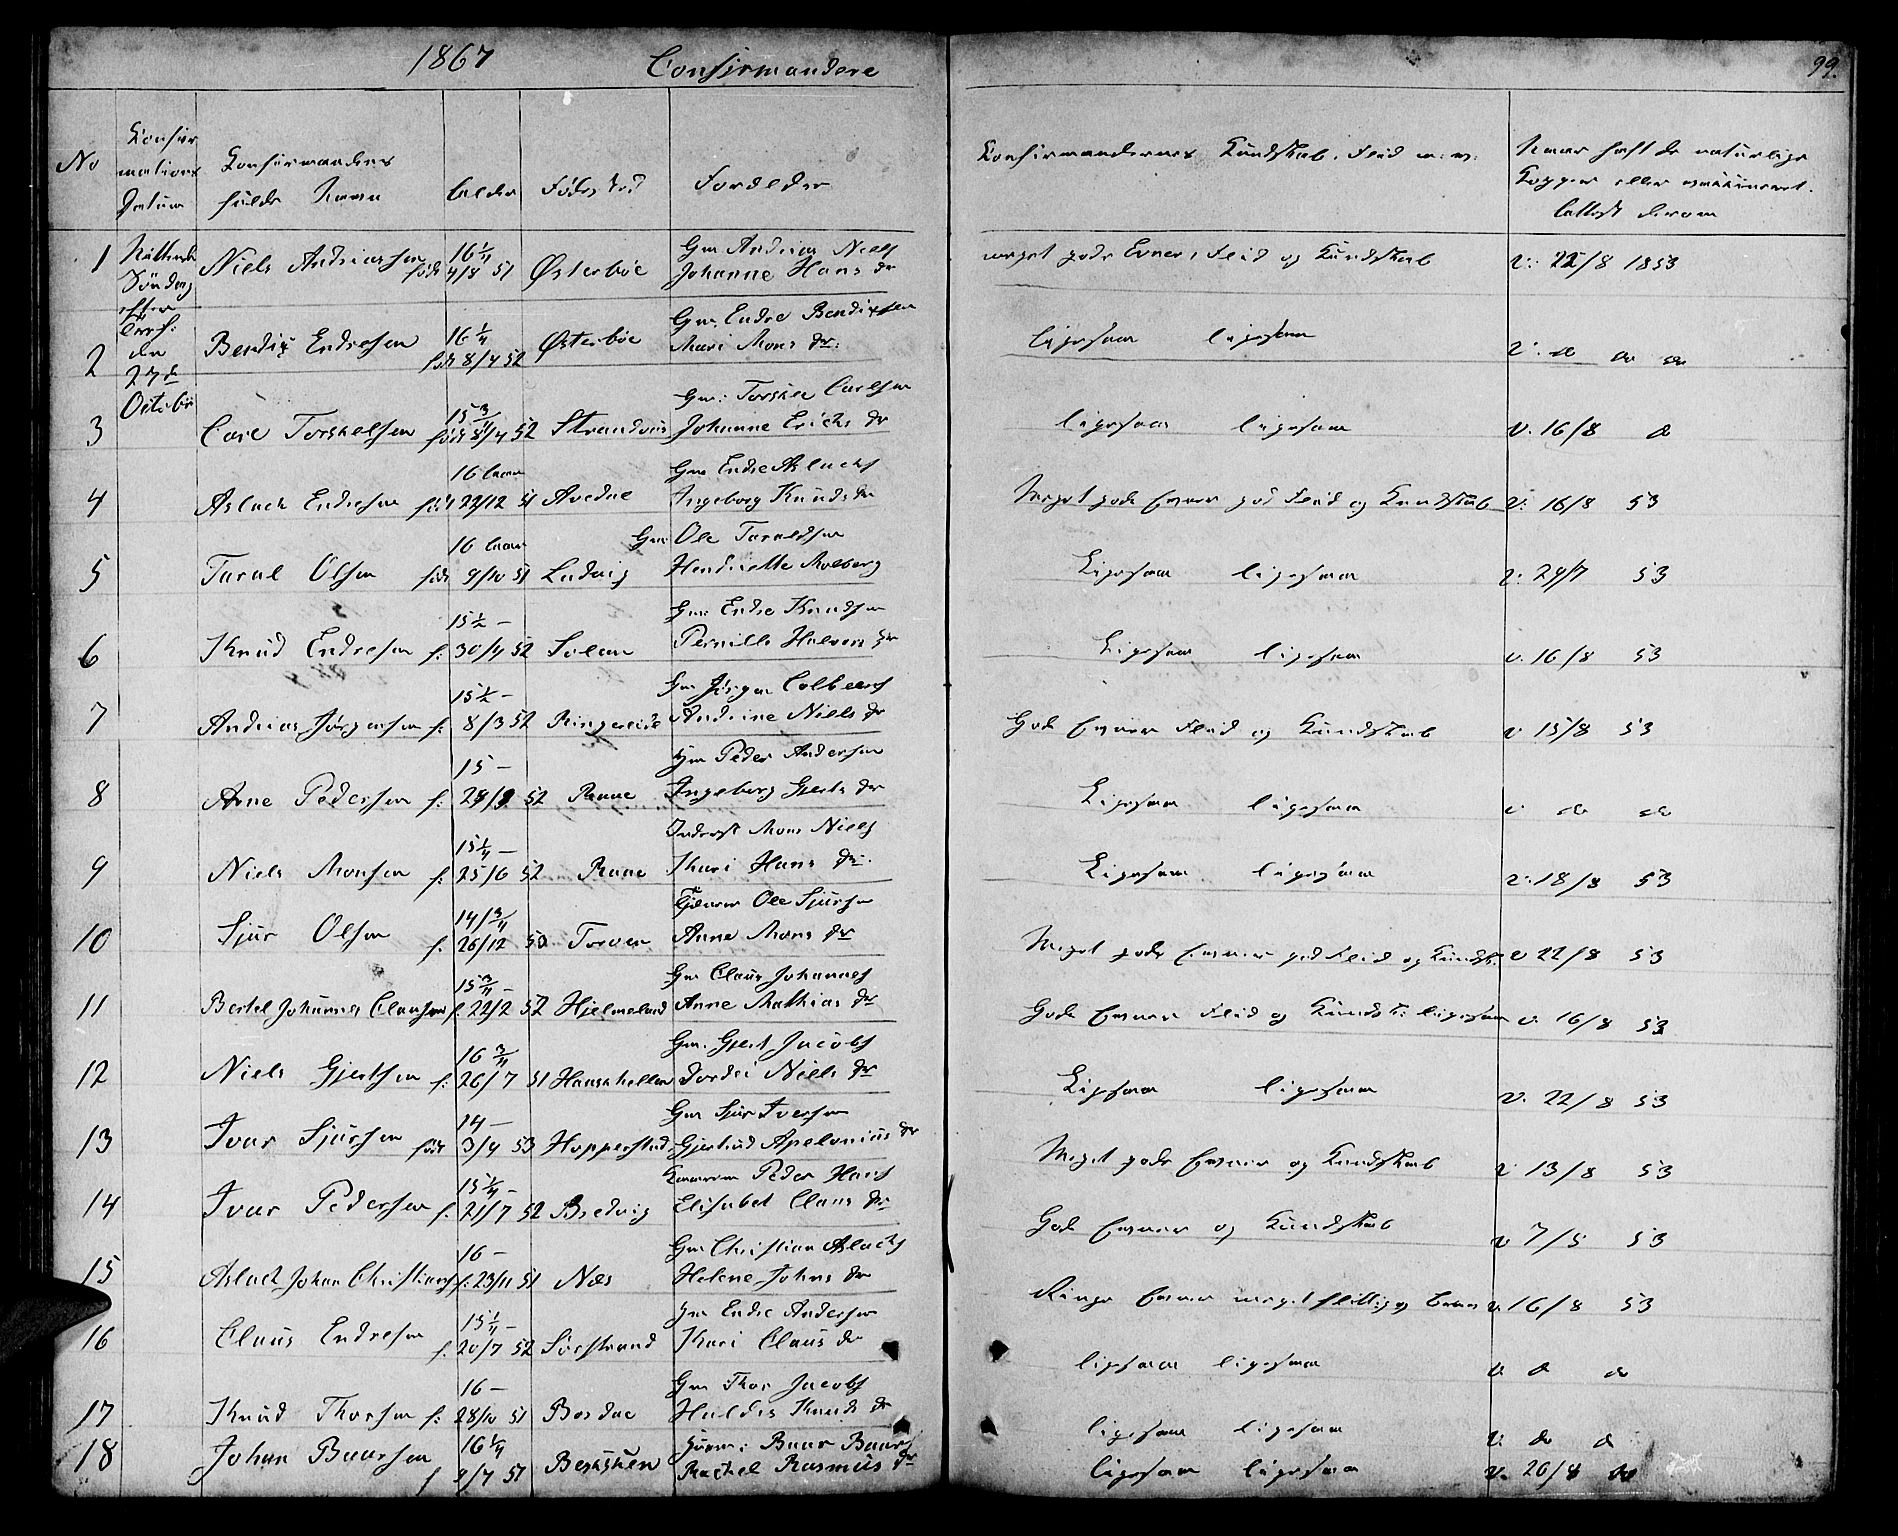 1867 Confirmandere
99.
No Konfirmations Datum Konfirmandens fulde Navn Alder Födested Forældre Konfirmandernes Kundskab, Flid m: v: Naar haft de naturlige Kopper eller vaccineret. Attest derom
Nittende Söndag efter den 27de Octobr
1 Niels Andriassen 16 1/4 född 4/8 51 Østerbøe Gm Andrias Niels Johanne Hans dr meget gode Evner, Flid og Kundskab v: 22/8 1853
2 Bendix Endresen 16 1/4 född 8/4 52 Østerbøe Gm. Endre Bendixsen Mari Mons dr: ligesaa ligesaa v: do do do
3 Torskelsen 15 3/4 född 52 Gm: Johanne Erichs dr ligesaa ligesaa v. 16/8 do
4 Aslach Endresen född 16 Aar 22/12 51 Avedae Gm Endre Aslachs Ingeborg Knuds dr Meget gode Evner god Flid og Kundskab v: 16/8 53
5 Taral Olsen född 16 Aar 9/10 51 Ladvig Gm Ole Taraldsen Henriette Molberg Ligesaa ligesaa v: 53
6 Knud Endresen f: 15 1/2 - 30/4 52 Gm: Endre Knudsen Pernille Halvors dr Ligesaa ligesaa v. 16/8 53
7 Andrias Jørgensen f: 15 1/2 - 8/3 52 Ringereide Gm Jørgen Andrine Niels dr Gode Evner Flid og Kundskab v 15/8 53
8 Arne Pedersen f: 15 - 52 Raae Gm Peder Andersen Ingeborg Gjerts dr Ligesaa ligesaa v do do
9 Niels Monsen f: 15 1/4 - 25/6 52 Raae Inderst Mons Niels Kari Hans dr. Ligesaa ligesaa v: 18/8 53
10 Sjur Olsen f: 26/12 Torven Tjener Ole Sjursen Anne Mons dr Meget gode Evner god Flid og Kundsk. v 22/8 53
11 Bertel Johannes Clausen f. 15 3/4 - 22/2 52 Hjelmeland Gm Claus Johannes Anne Mathias dr Gode Evner Flid og Kundsk: ligesaa v. 16/8 53
12 Niels Gjertsen f: 16 3/4 26/7 51 Gm. Gjert Jacobs Niels dr Ligesaa ligesaa v. 22/8 53
13 Ivar Sjursen född 14 - 3/4 53 Hopperstad Gm Sjur Iversen Gjertrud Apelonius dr Meget gode Evner og Kundskab v 13/8 53
14 Ivar Pedersen f. 15 1/4 - 21/7 52 Bredvig Peder Hans Elisabet Claus dr Gode Evner og Kundskab v 7/5 53
15 Aslach Johan Christians f: 16 - 23/11 51 Næs Gm Christian Aslachs Helene Johns dr Ringe Evner meget flittig v. 16/8 53
16 Claus Endresen f. 15 1/4 - 20/7 52 Sörstrand Gm Endre Andersen Kari Claus dr ligesaa ligesaa v do do
17 Knud Thorsen f: 16 - 28/10 51 Bordae Gm Thor Jacobs Huldis Knuds dr ligesaa ligesaa v: do do
18 Johan Baarsen f 16 1/4 51 Baar Baars Rachel Rasmus dr ligesaa ligesaa v. 26/8 do